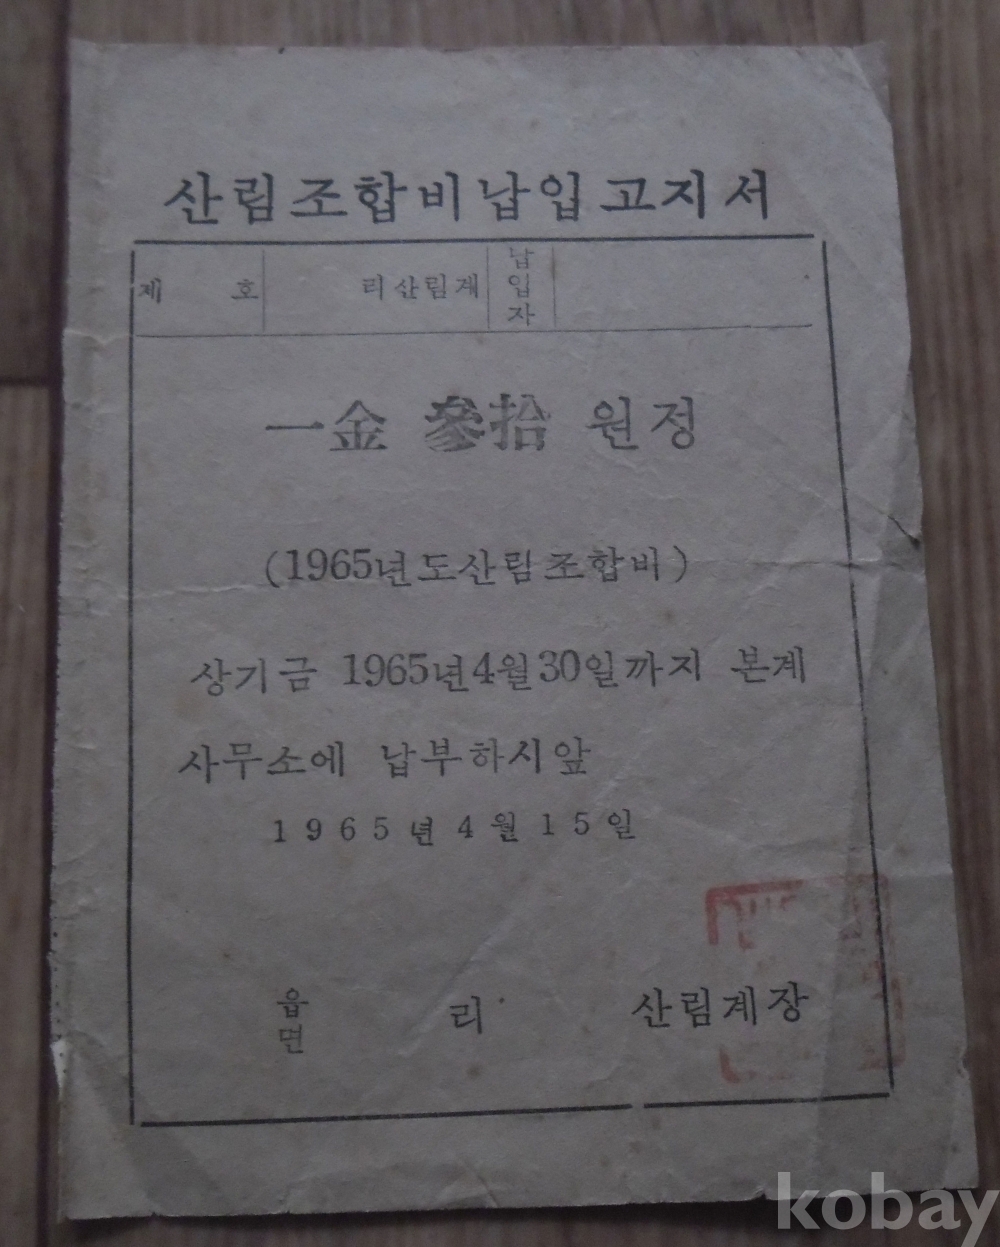 산림조합비납입고지서
제 호 리산림계 납입자
一金 參拾 원정
(1965년도산림조합비)
상기금 1965년4월30일까지 본계
사무소에 납부하시앞
1965년4월15일
읍면 리 산림계장
kobay